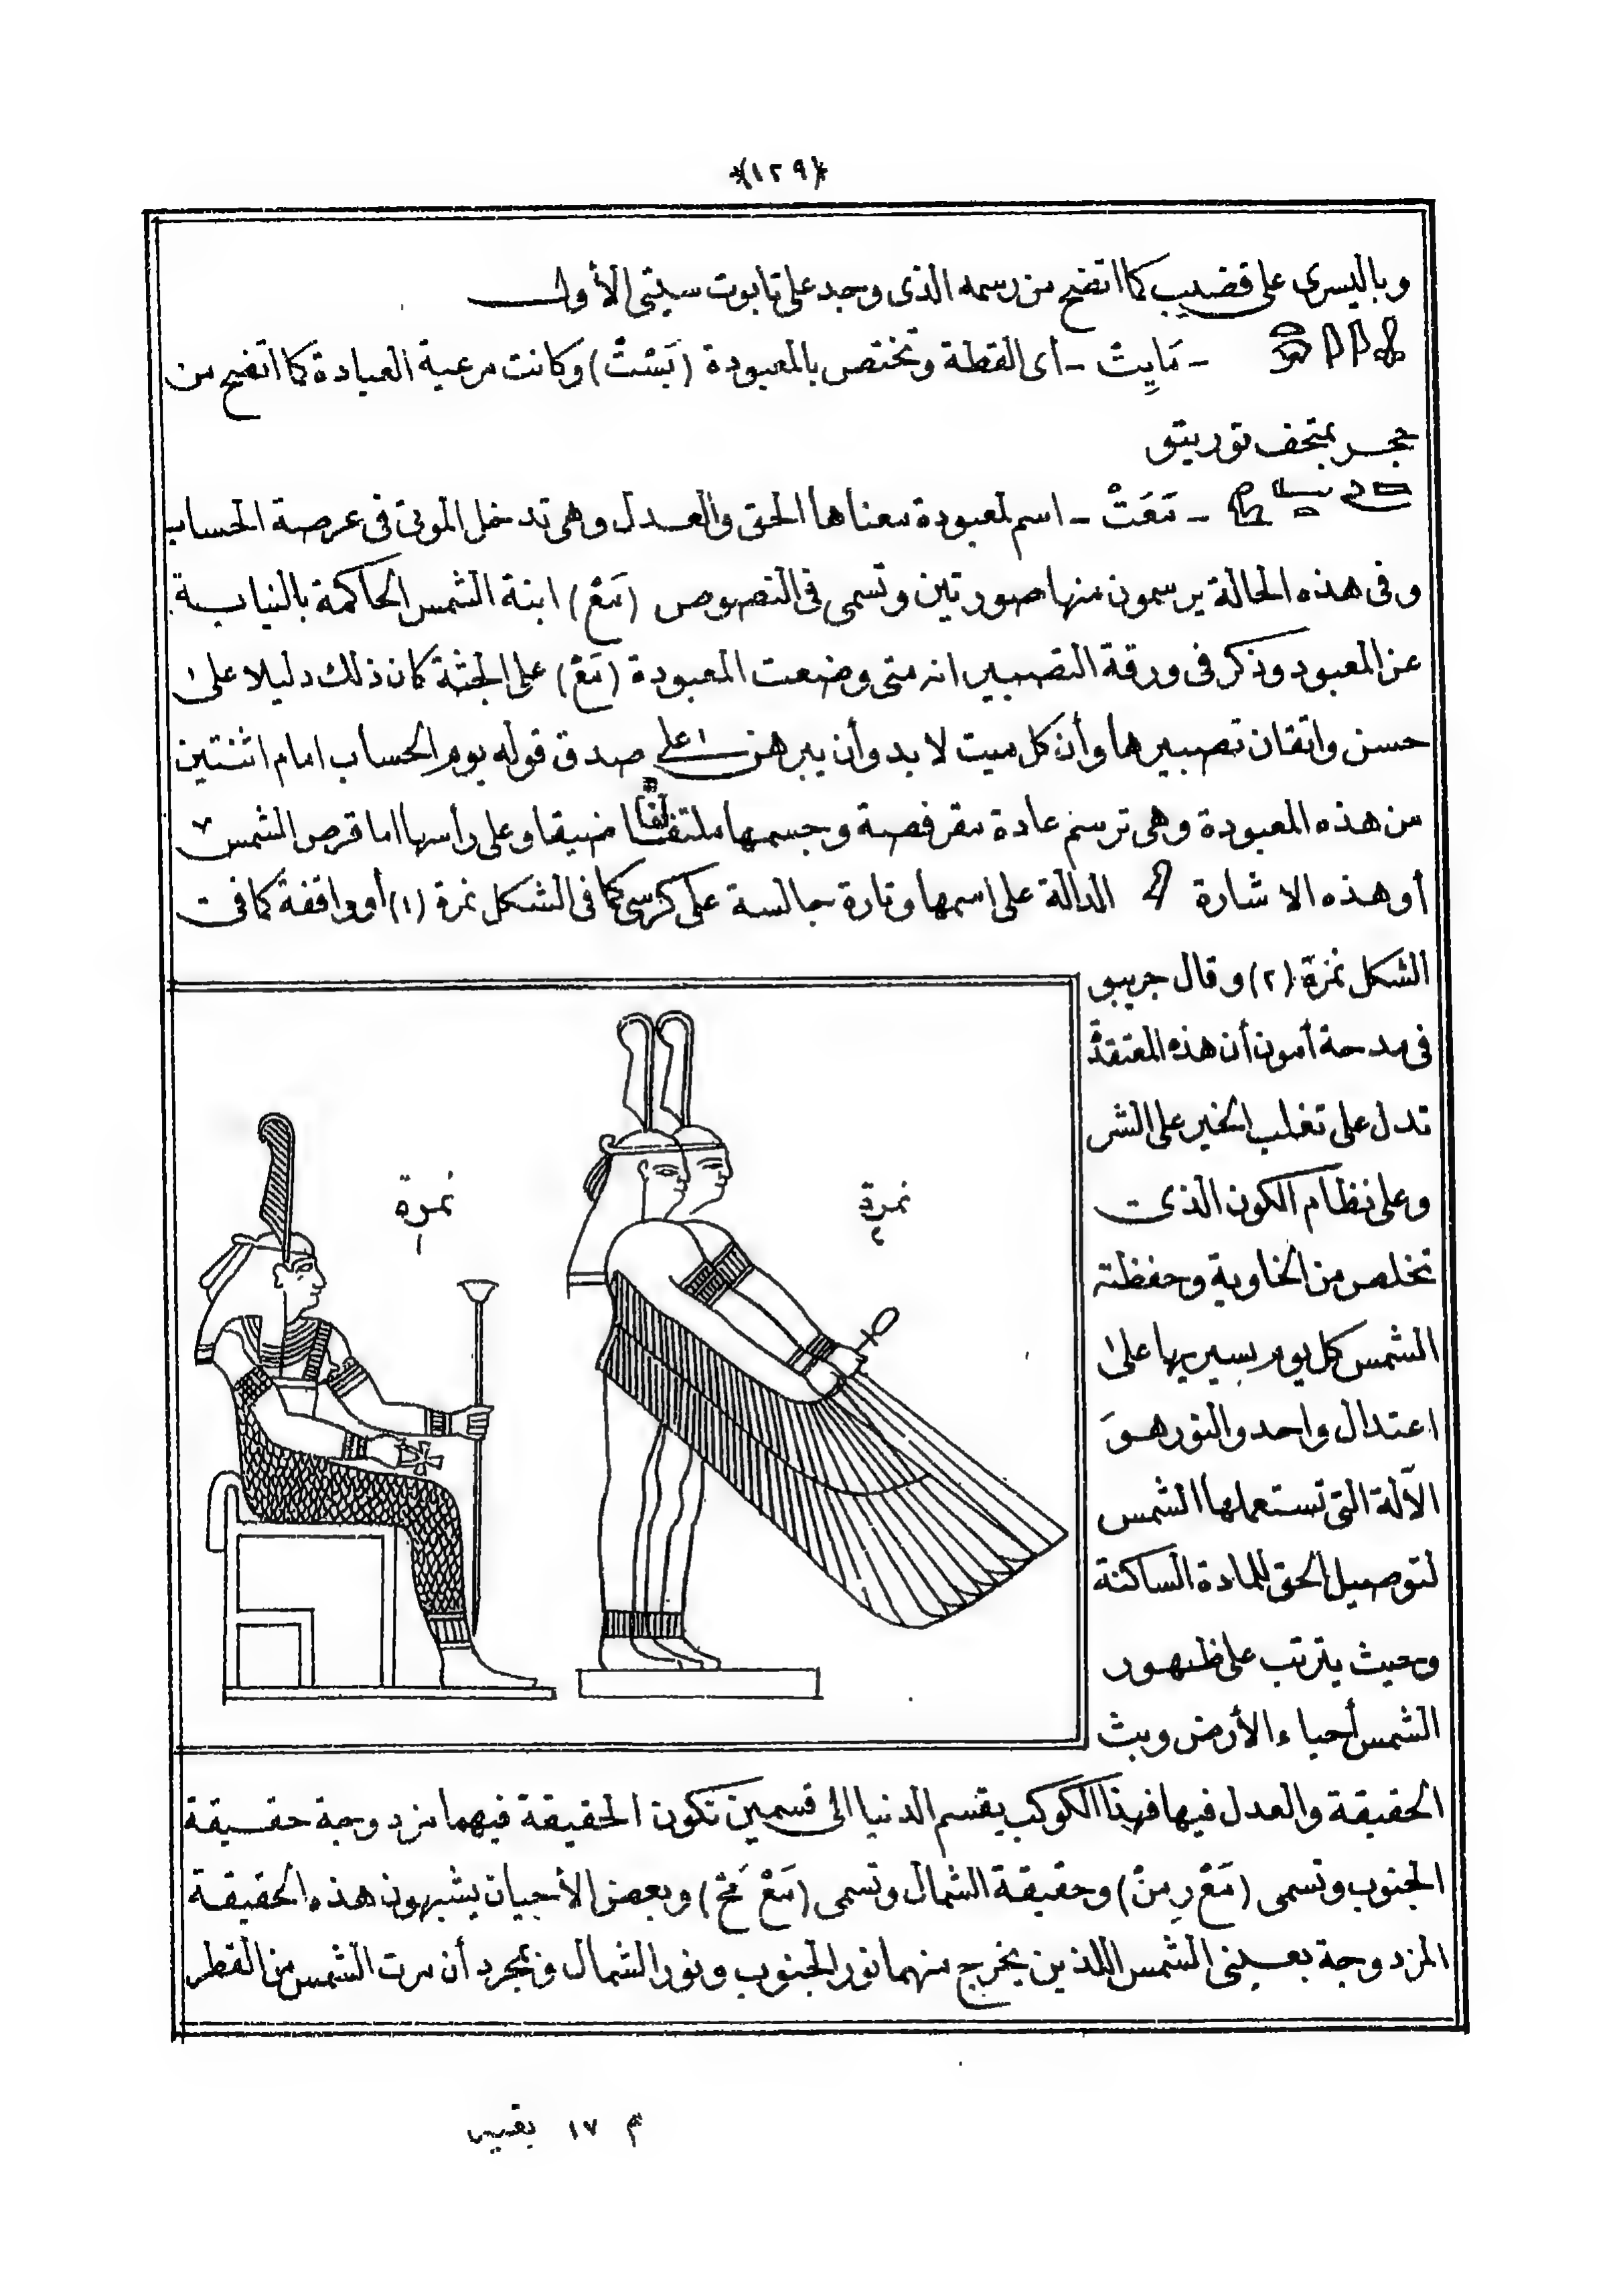 ﴿١٢٩﴾
وباليسرى على قضيب كما اتضح من رسمه الذى وجد على تابوت سيتى الأول
- مَايِتْ - أى القطة وتختص بالمعبودة (بَسْتْ) وكانت مرعية العبادة كما اتضح من
حجر بمتحف تورينو
- مَعَتْ - اسم لمعبودة معناها الحق والعدل وهى تدخل الموتى فى عرصة الحساب
وفى هذه الحالة يرسمون منها صورتين وتسمى فى النصوص (مَعْ) ابنة الشمس الحاكمة بالنيابة
عن المعبود وذكر فى ورقة التصبير انه متى وضعت المعبودة (مَعْ) على الجثة كان ذلك دليلا على
حسن واتقان تصبيرها وأن كل ميت لا بد وأن يبرهن على صدق قوله يوم الحساب امام اثنتين
من هذه المعبودة وهى ترسم عادة مقرفصة وجسمها ملتف لفا ضيقا وعلى رأسها اما قرص الشمس
أو هذه الاشارة الدالة على اسمها وتارة جالسة على كرسى كما فى الشكل نمرة (١) أو واقفة كما فى
الشكل نمرة (٢) وقال جريبو
فى مدحة أمون أن هذه المعتقدة
تدل على تغلب الخير على الشر
وعلى نظام الكون الذى
تخلص من الخاوية وحفظته
الشمس كل يوم بسيرها على
اعتدال واحد والنور هو
الآلة التى تستعملها الشمس
لتوصيل الحق للمادة الساكنة
وحيث يترتب على ظهور
الشمس أحياء الأرض وبث
نمرة ٢
نمرة ١
الحقيقة والعدل فيها فهذا الكوكب يقسم الدنيا الى قسمين تكون الحقيقة فيهما مزدوجة حقيقة
الجنوب وتسمى (مَعْ رِسْ) وحقيقة الشمال وتسمى (مَعْ مَحْ) وبعض الأحيان يشبهون هذه الحقيقة
المزدوجة بعينى الشمس اللذين يخرج منهما نور الجنوب ونور الشمال وبمجرد أن مرت الشمس من القطر
م ١٧